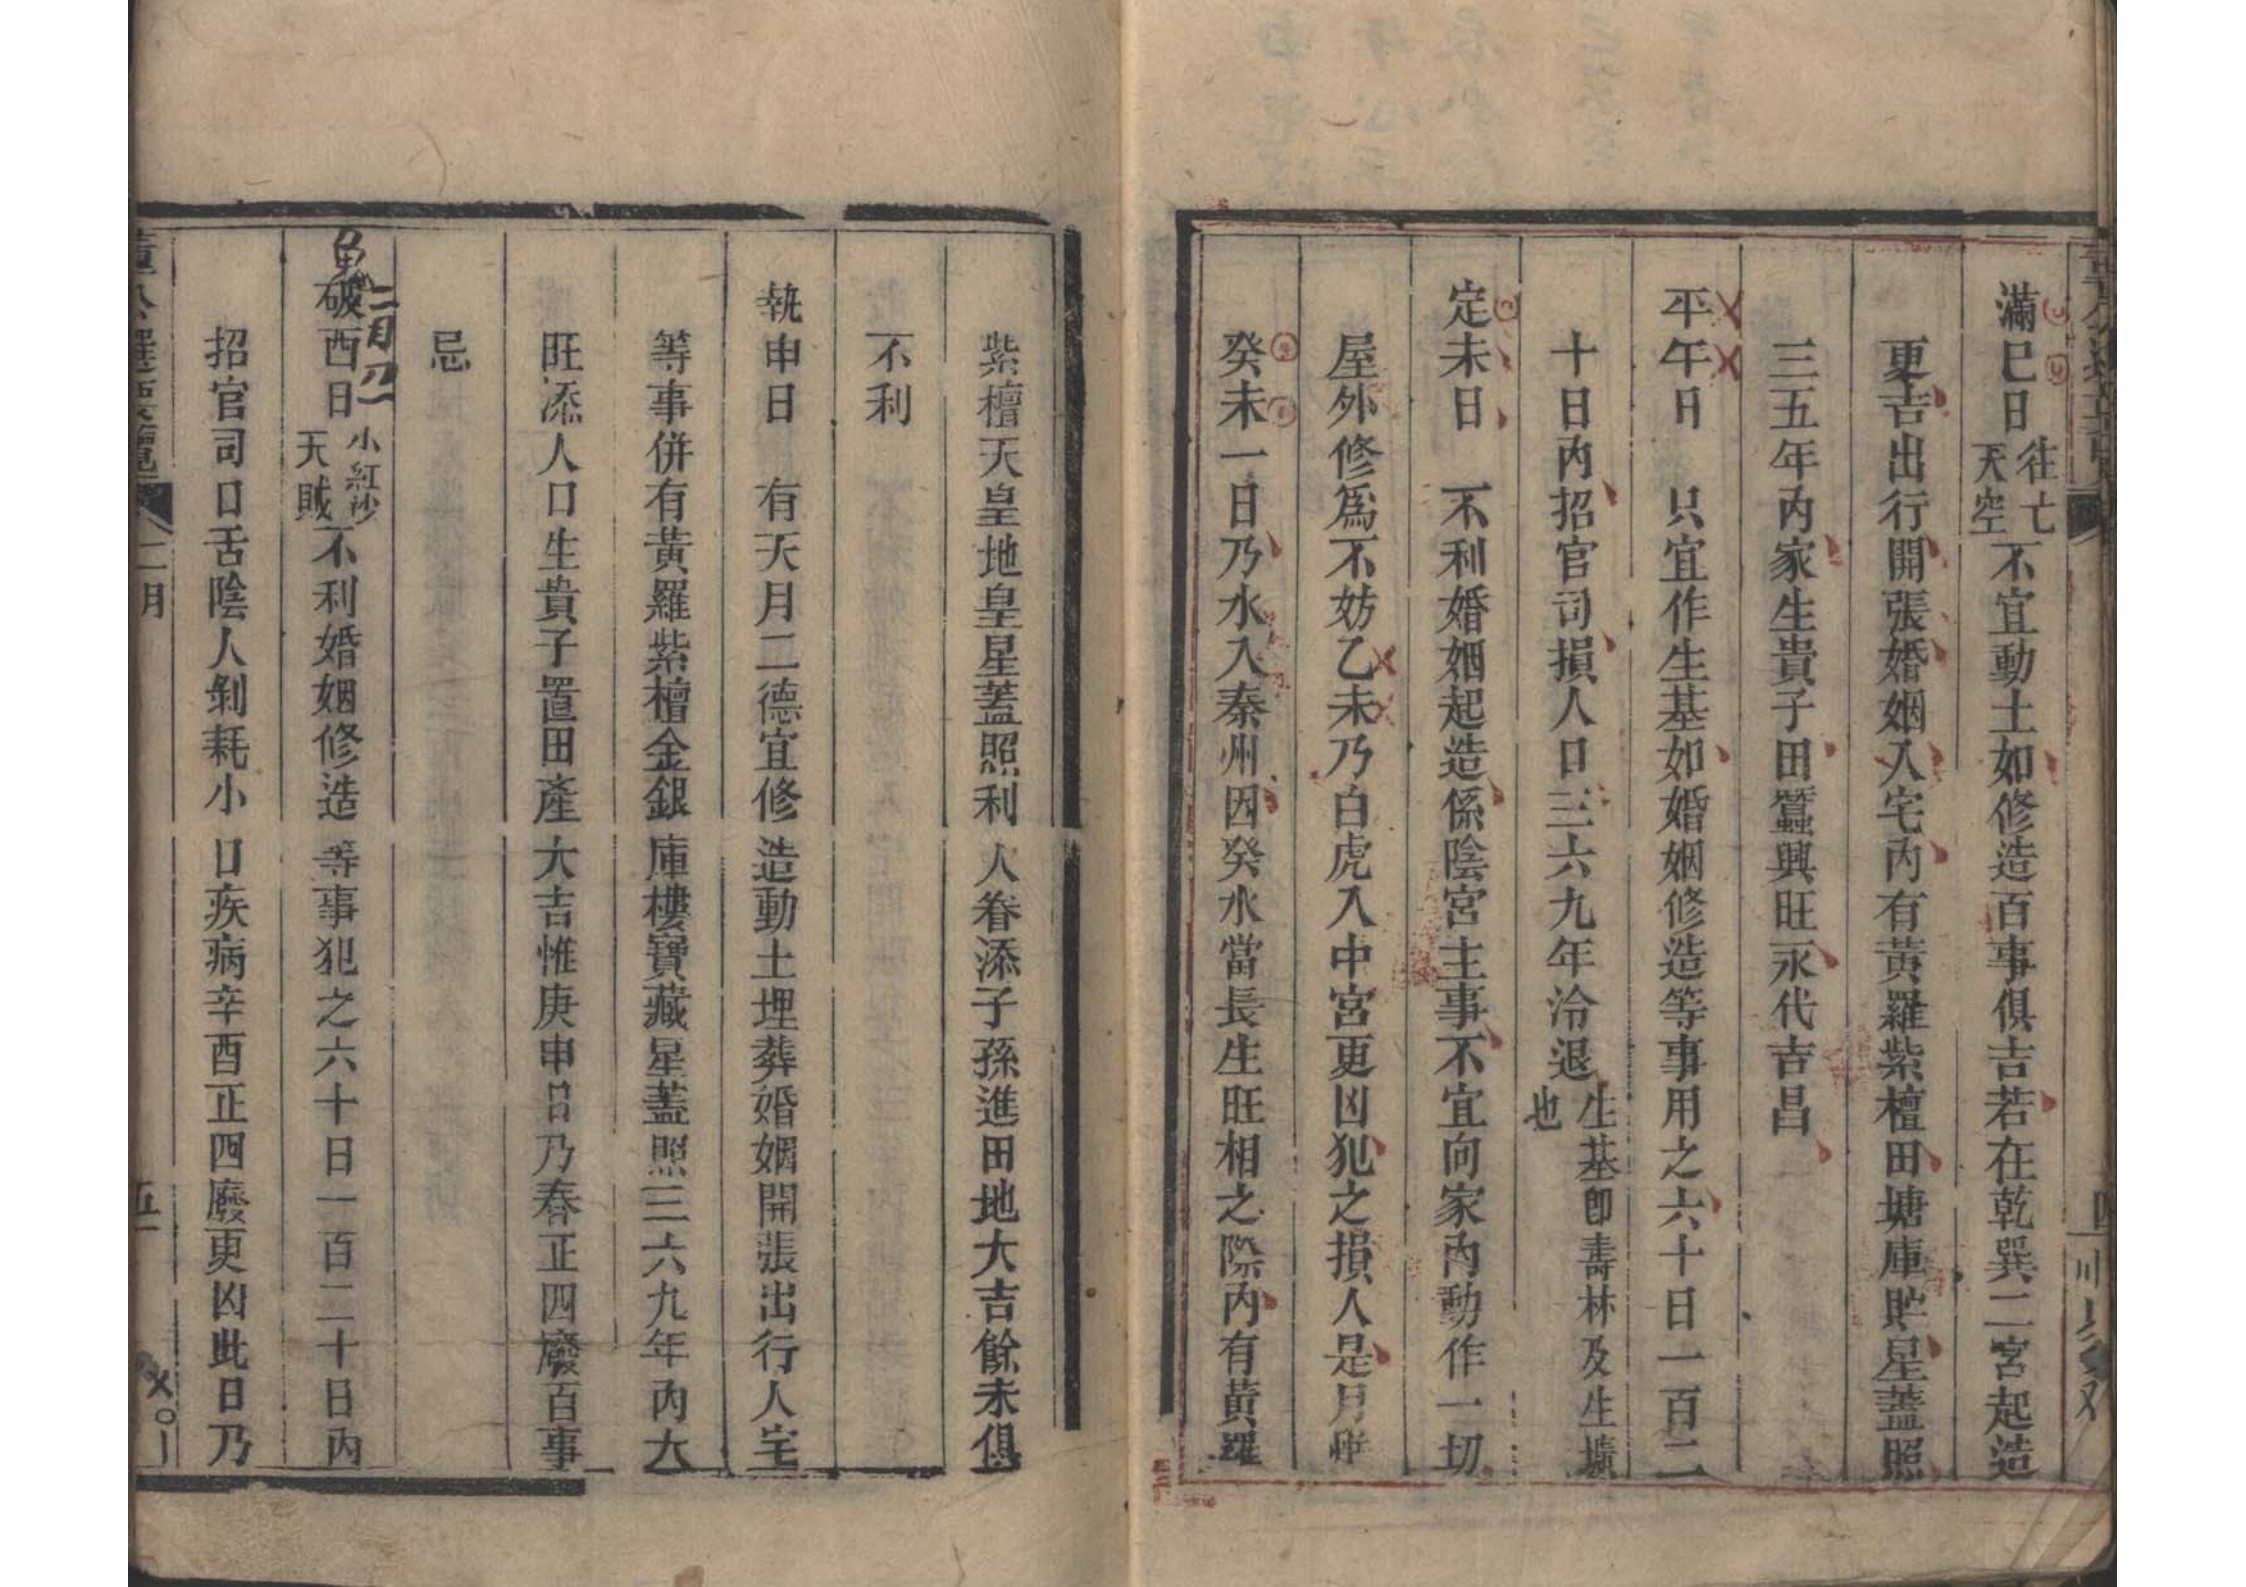 滿巳日 往亡 天空 不宜動土如修造百事俱吉若在乾巽二宮起造
更吉出行開張婚姻入宅內有黃羅紫檀田塘庫貯星蓋照
三五年內家生貴子田蠶興旺永代吉昌
平午日 只宜作生基如婚姻修造等事用之六十日一百二
十日內招官司損人口三六九年冷退 生基卽壽林及生壙也
定未日 不利婚姻起造係陰宮主事不宜向家內動作一切
屋外修爲不妨乙未乃白虎入中宮更凶犯之損人是月惟
癸未一日乃水入秦州因癸水當長生旺相之際內有黃羅
紫檀天皇地皇星蓋照利人眷添子孫進田地大吉餘未俱
不利
執申日 有天月二德宜修造動土埋葬婚姻開張出行入宅
等事併有黃羅紫檀金銀庫樓寶藏星蓋照三六九年內大
旺添人口生貴子置田產大吉惟庚申日乃春正四廢百事
忌
破酉日 小紅沙 天賊 不利婚姻修造等事犯之六十日一百二十日內
招官司口舌陰人剝耗小口疾病辛酉正四廢更凶此日乃
二月
五